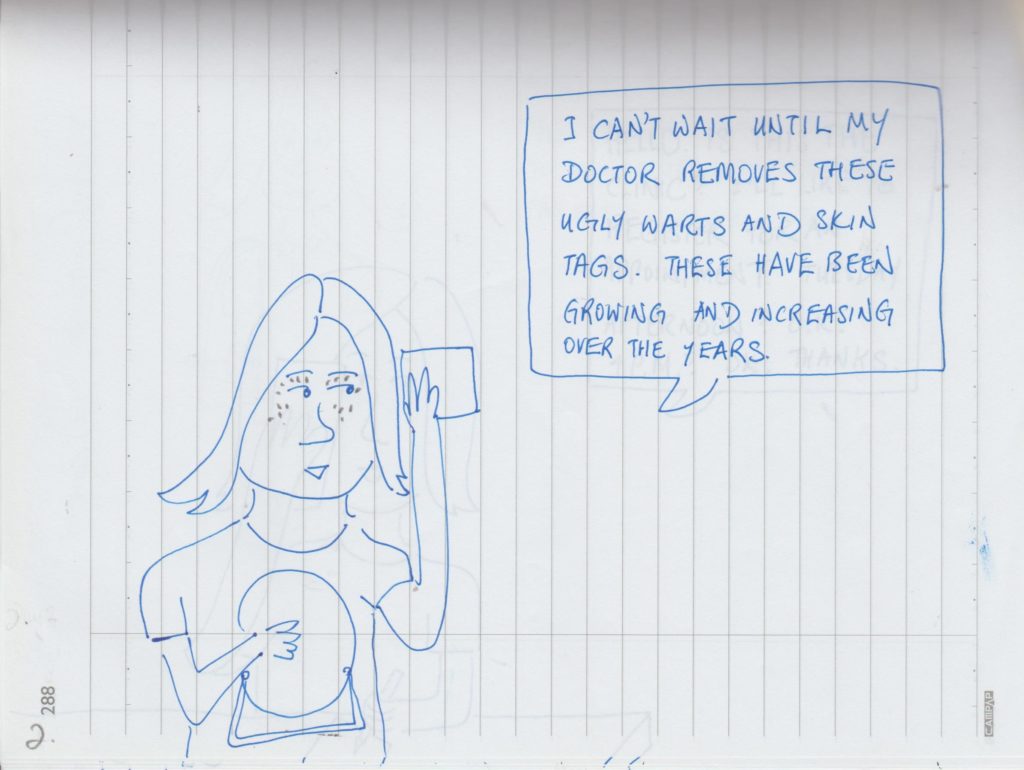 I CAN'T WAIT UNTIL MY
DOCTOR REMOVES THESE
UGLY WARTS AND SKIN
TAGS. THESE HAVE BEEN
GROWING AND INCREASING
OVER THE YEARS.
288
2.
CAMPAP